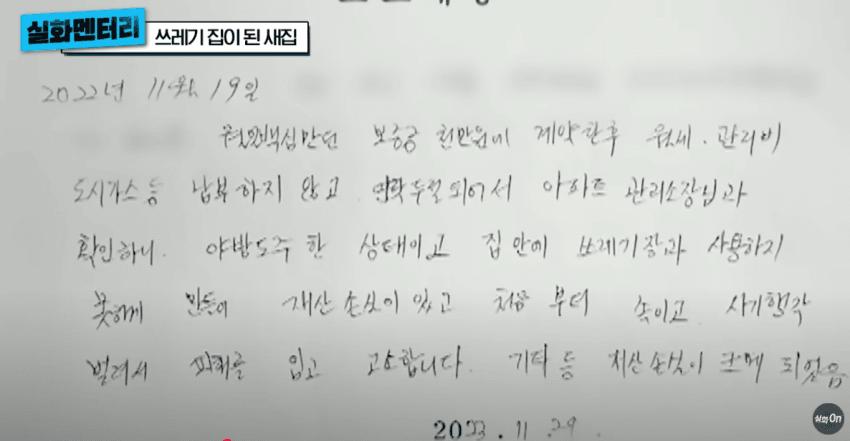 실화멘터리
쓰레기 집이 된 새집
2022년 11월 19일
보증금 천만원에 계약한후 월세. 관리비
도시가스 등 납부하지 않고 연락두절되어서 아파트 관리소장님과
확인하니. 야밤도주 한 상태이고 집안에 쓰레기장과 사용하지
못하게 만들어 재산손실이 있고 처음부터 속이고 사기행각
벌려서 피해를 입고 고소합니다. 기타 등 재산손실이 크게 되었음
2023.11.29
실화On